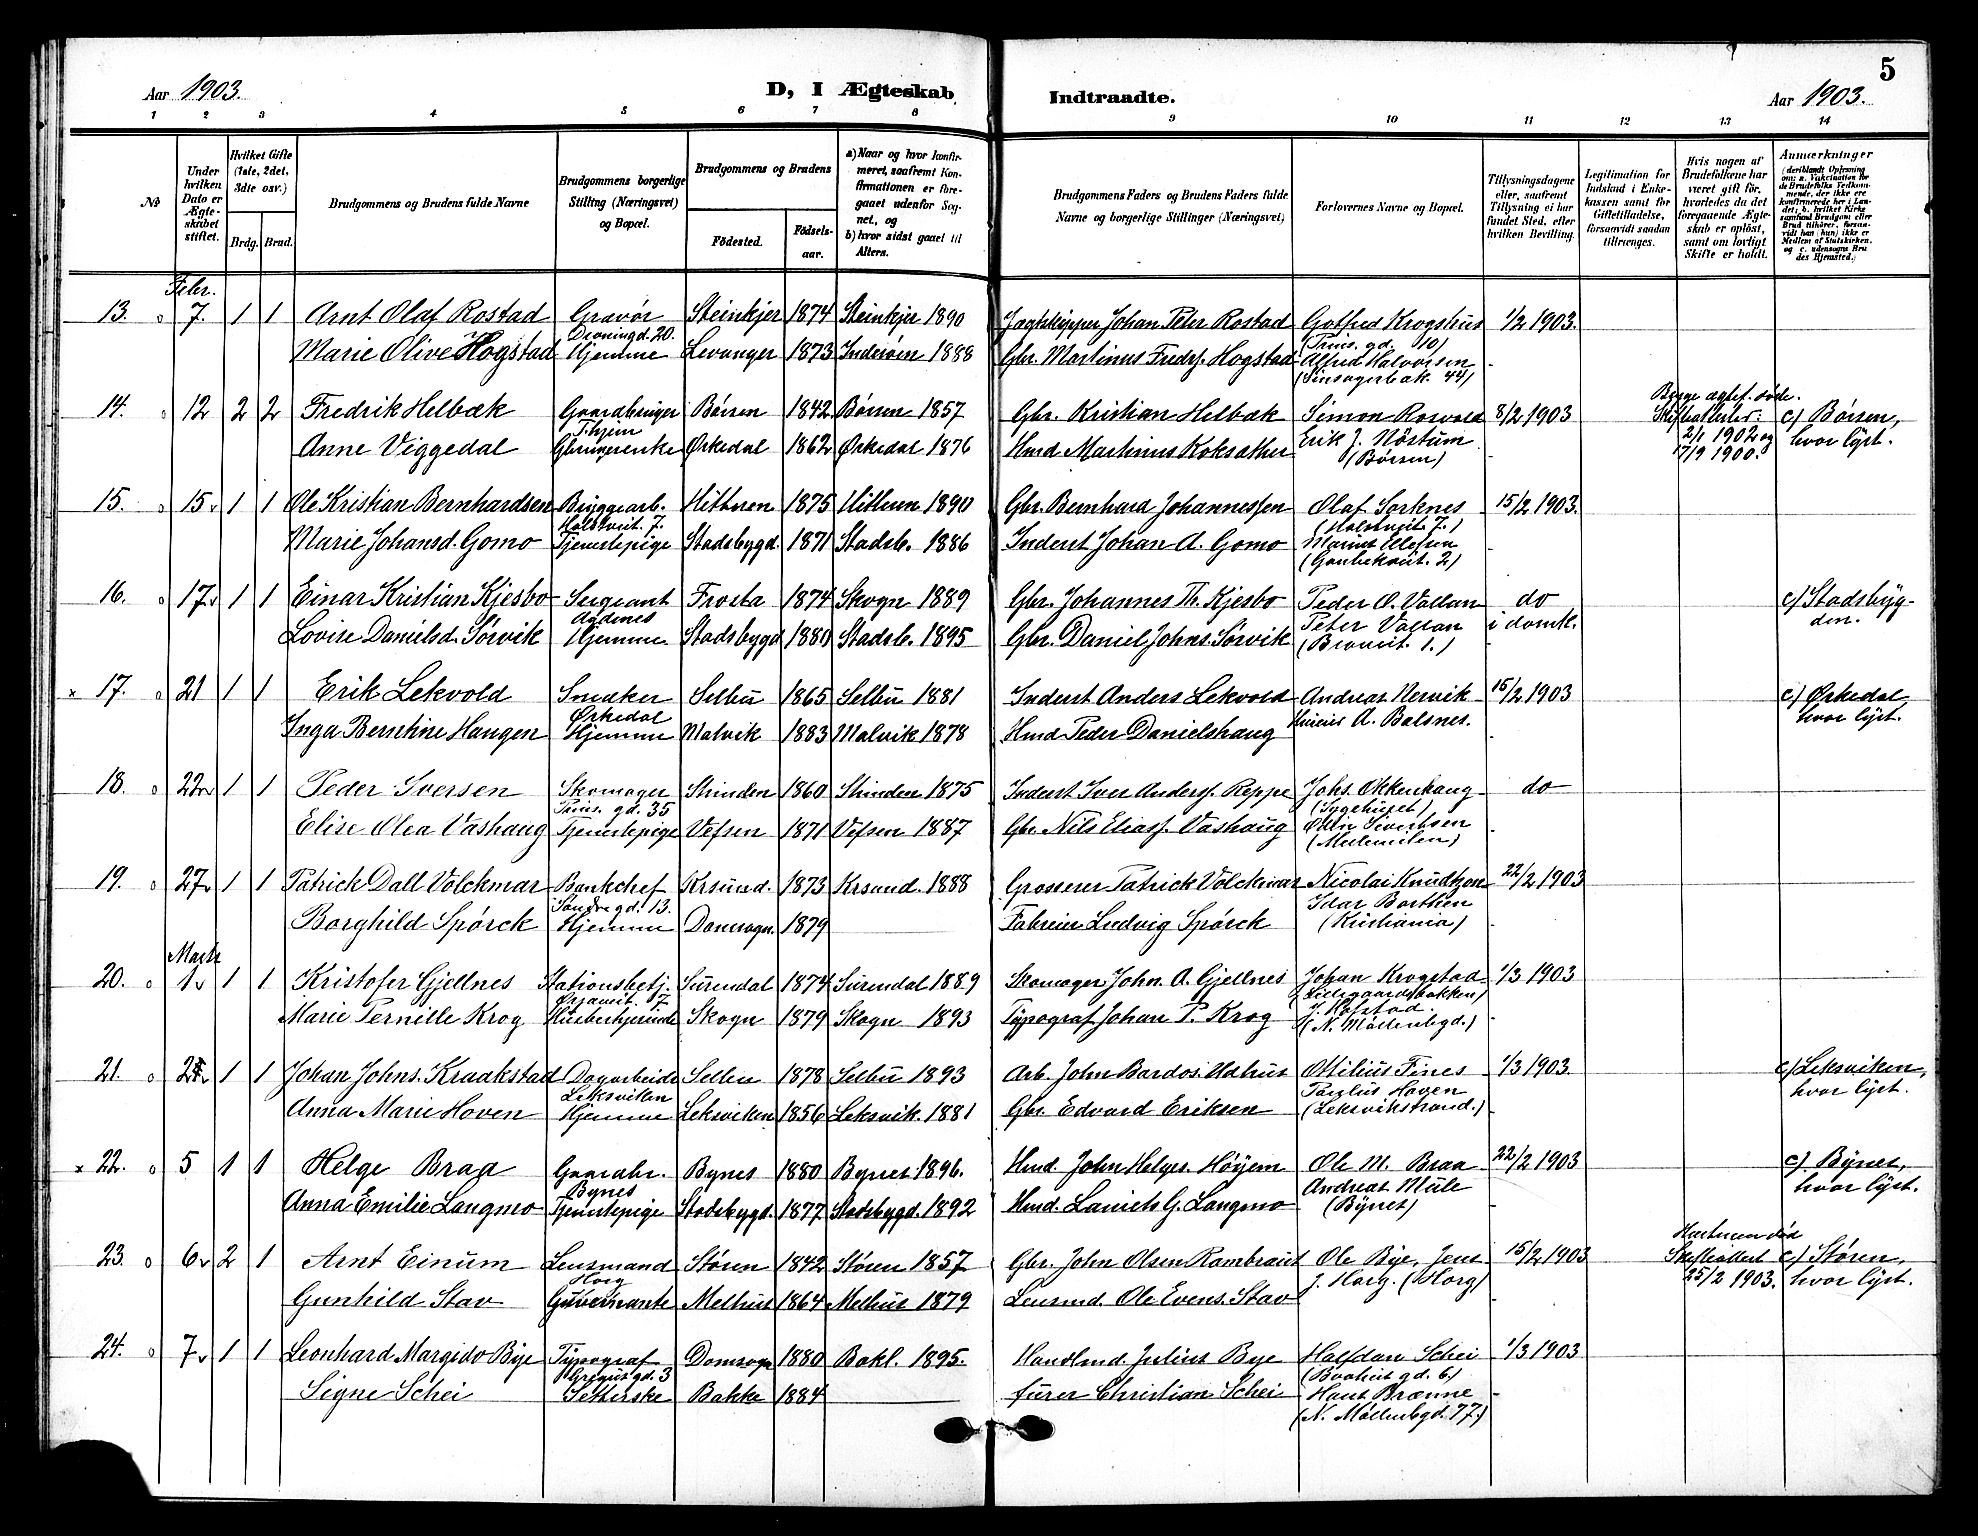 Aar 1903. D, I Ægteskab Indtraadte. Aar 1903. 5
1 2 3 4 5 6 7 8 9 10 11 12 13 14
No
Under hvilken Dato er Ægteskabet stiftet.
Hvilket Gifte (1ste, 2det, 3die osv.)
Brdg. Brud.
Brudgommens og Brudens fulde Navne
Brudgommens borgerlige Stilling (Næringsvei) og Bopæl.
Brudgommens og Brudens
Fødested. Fødselsaar.
a) Naar og hvor konfirmeret, saafremt Konfirmationen er foregaaet udenfor Sognet, og
b) hvor sidst gaaet til Alters.
Brudgommens Faders og Brudens Faders fulde Navne og borgerlige Stillinger (Næringsvei)
Forlovernes Navne og Bopæl.
Tillysningsdagene eller, saafremt Tillysning ei har fundet Sted, efter hvilken Bevilling.
Legitimation for Indskud i Enkekassen samt for Giftetilladelse, forsaavidt saadan tiltrænges.
Hvis nogen af Brudefolkene har været gift før, hvorledes da det foregaaende Ægteskab er opløst, samt om lovligt Skifte er holdt.
Anmærkninger
Febr.
13. 7. 1 1 Arnt Olaf Rostad Gravør Steinkjer 1874 Steinkjer 1890 Jagtskipper Johan Peter Rostad Gotfred Krogshus 1/2 1903.
Dronningd. 20. (Prins. gd. 10)
Marie Olive Hogstad Hjemme Levanger 1873 Inderøen 1888 Gbr. Martinus Fredrs. Hogstad Alfred Halvorsen
(Sinsagerbak. 44)
14. 12 2 2 Fredrik Helbæk Gaardbruger Børsen 1842 Børsen 1857 Gbr. Kristian Helbæk Simon Rosvold 8/2 1903 Begge ægtef. døde. c) Børsen,
Thjem 2/1 1902 og hvor lyst.
Anne Viggedal Ørkedal 1862 Ørkedal 1876 Husmd Martinus Koksæther Erik J. Nöstum 17/9 1900.
(Børsen)
15. 15 1 1 Ole Kristian Bernhardsen Bryggearb. Hitteren 1875 Hitteren 1890 Gbr. Bernhard Johannessen Olaf Sorknes 15/2 1903.
Marie Johansd. Gomo Tjenestepige Stadsbygd. 1871 Stadsb. 1886 Inderst Johan A. Gomo Marius Olefsen
16. 17 1 1 Einar Kristian Kjesbo Sergeant Frosta 1874 Skogn 1889 Gbr. Johannes Th. Kjesbo Peder O. Vallan do c) Stadsbyg-
Agdenes den.
Lovise Danielsd. Sørvik Hjemme Stadsbygd 1880 Stadsb. 1895 Gbr. Daniel Johns. Sørvik Peter Vallan i domk.
17. 21 1 1 Erik Lekvold Snedker Selbu 1865 Selbu 1881 Inderst Anders Lekvold Andreas Nervik 15/2 1903 c) Ørkedal
Ørkedal hvor lyst.
Inga Berntine Haugen Hjemme Malvik 1883 Malvik 1878 Husmd Peder Danielshaug A. Balsnes.
18. 22 1 1 Peder Iversen Skomager Strinden 1860 Strinden 1875 Inderst Iver Anders. Reppe Johs. Okkenhaug do
Prins. gd. 35 (Sygehuset)
Elise Olea Vashaug Tjenestepige Vefsen 1871 Vefsen 1887 Gbr. Nils Eliass. Vashaug Odin Sivertsen
19. 27 1 1 Patrick Dall Volckmar Bankchef Krsund. 1873 Krsund. 1888 Grosserer Patrick Volckmar Nicolai Knudtzon 22/2 1903
Søndre gd. 13.
Borghild Spørck Hjemme Domsogn. 1879 Fabreier Ludvig Spørck Idar Borthen
(Kristiania)
Marts
20. 1 1 1 Kristofer Gjellnes Stationsbetj. Surendal 1874 Surendal 1889 Skomager John A. Gjellnes Johan Krogstad 1/3 1903
Marie Pernille Krog Skogn 1879 Skogn 1893 Typograf Johan P. Krog J. Hofstad.
(N. Møllenbgd.)
21. 1 1 Johan Johns. Kraakstad Dagarbeide Selbu 1878 Selbu 1893 Arb. John Bardos. Udhus Otilius Fines 1/3 1903. c) Leksviken,
Leksviken hvor lyst.
Anna Marie Hoven Hjemme Leksviken 1856 Leksvik. 1881 Gbr Edvard Eriksen Paulus Hoven
(Leksvikstrand.)
22. 5 1 1 Helge Braa Gaardbr. Bynes 1880 Bynes 1896. Husmd. John Helges. Høyem Ole M. Braa 22/2 1903 c) Bynes,
Bynes hvor lyst.
Anna Emilie Langmo Tjenestepige Stadsbygd. 1877 Stadsbygd. 1892 Husmd. Daniels G. Langmo Andreas Mule
(Bynes)
23. 6 2 1 Arnt Einum Lensmand Støren 1842 Støren 1857 Gbr. John Olsen Rambraut Ole Bye, Jens 15/2 1903 Hustruen død c) Støren,
Horg J. Horg. (Horg) Skifteattest 25/2 1903. hvor lyst.
Gunhild Stav Guvernante Melhus 1864 Melhus 1879 Lensmd. Ole Evens. Stav
24. 7 1 1 Leonhard Margido Bye Typograf Domsogn 1880 Bakl. 1895. Handlmd. Julius Bye Halfdan Schei 1/3 1903
Signe Schei Setterske Bakke 1884 furer Christian Schei Hans Brænne
(N. Møllenbgd. 77.)